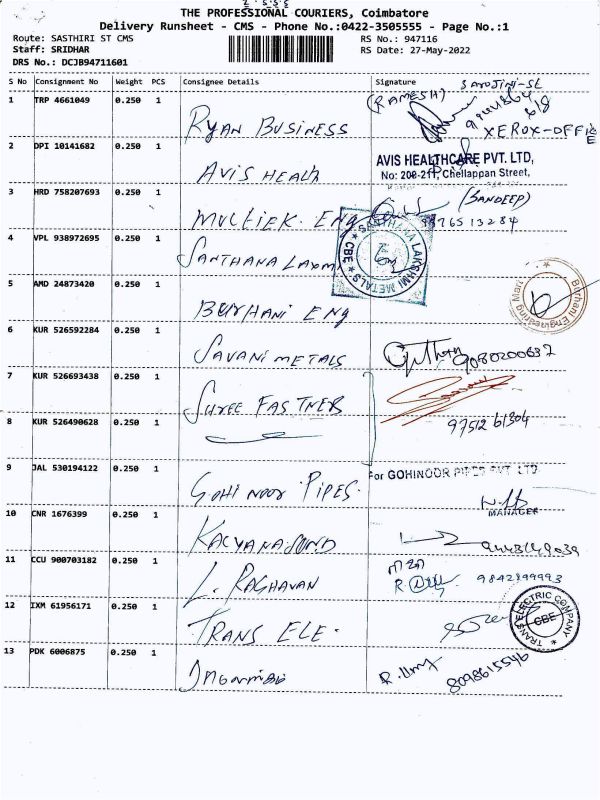 THE PROFESSIONAL COURIERS, Coimbatore
Delivery Runsheet - CMS - Phone No.:0422-3505555 - Page No.:1
Route: SASTHIRI ST CMS
RS No.: 947116
Staff: SRIDHAR
RS Date: 27-May-2022
DRS No.: DCJB94711601
S No Consignment No Weight PCS Consignee Details Signature
1 TRP 4661049 0.250 1 RYAN BUSINESS (RAMESH)
XEROX-OFFICE
2 DPI 10141682 0.250 1 AVIS HEALTH AVIS HEALTHCARE PVT. LTD,
No: 208-211, Chellappan Street,
3 HRD 758207693 0.250 1 MULTIEK. ENG (SANDEEP)
4 VPL 938972695 0.250 1 SANTHANA LAXMI SANTHANA LAKSHMI METALS CBE
5 AMD 24873420 0.250 1 BURHANI ENG Burhani Engineering Mart
6 KUR 526592284 0.250 1 SAVANI METALS 9080200637
7 KUR 526693438 0.250 1 SHREE FASTNER
8 KUR 526490628 0.250 1 97512 61304
9 JAL 530194122 0.250 1 GOHINOOR PIPES. For GOHINOOR PIPES PVT LTD
MANAGER
10 CNR 1676399 0.250 1
11 CCU 900703182 0.250 1 L. RAGHAVAN 9842899993
12 IXM 61956171 0.250 1 TRANS ELE. TRANS ELECTRIC COMPANY CBE
13 PDK 6006875 0.250 1 8098615546